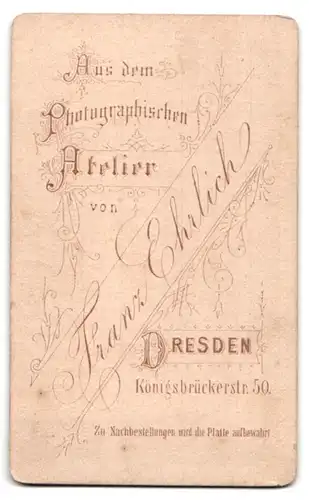 Aus dem
Photographischen
Atelier
von
Franz Ehrlich
DRESDEN
Königsbrückerstr. 50.
Zu Nachbestellungen wird die Platte aufbewahrt